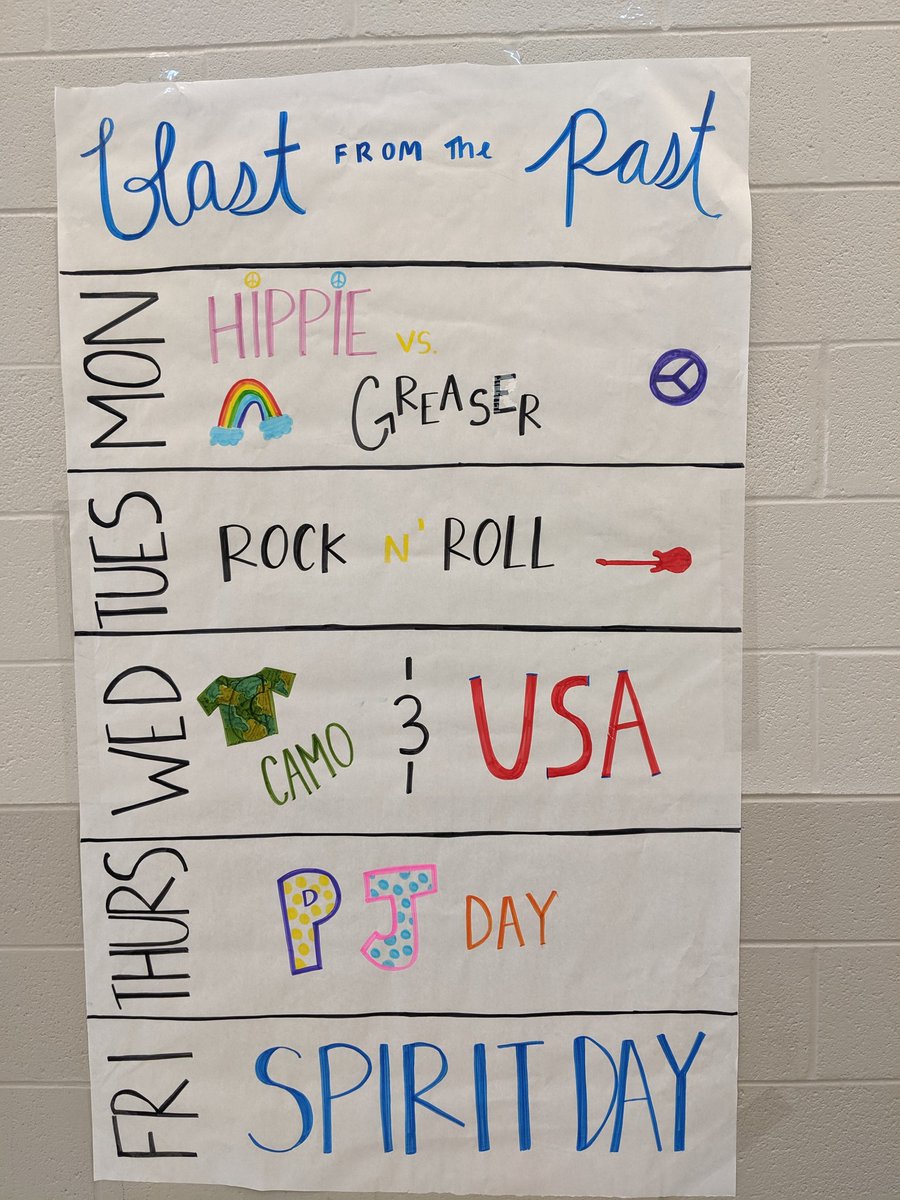 blast FROM the Past
MON
HIPPIE vs.
GREASER
TUES
ROCK N' ROLL
WED
CAMO & USA
THURS
PJ DAY
FRI
SPIRIT DAY